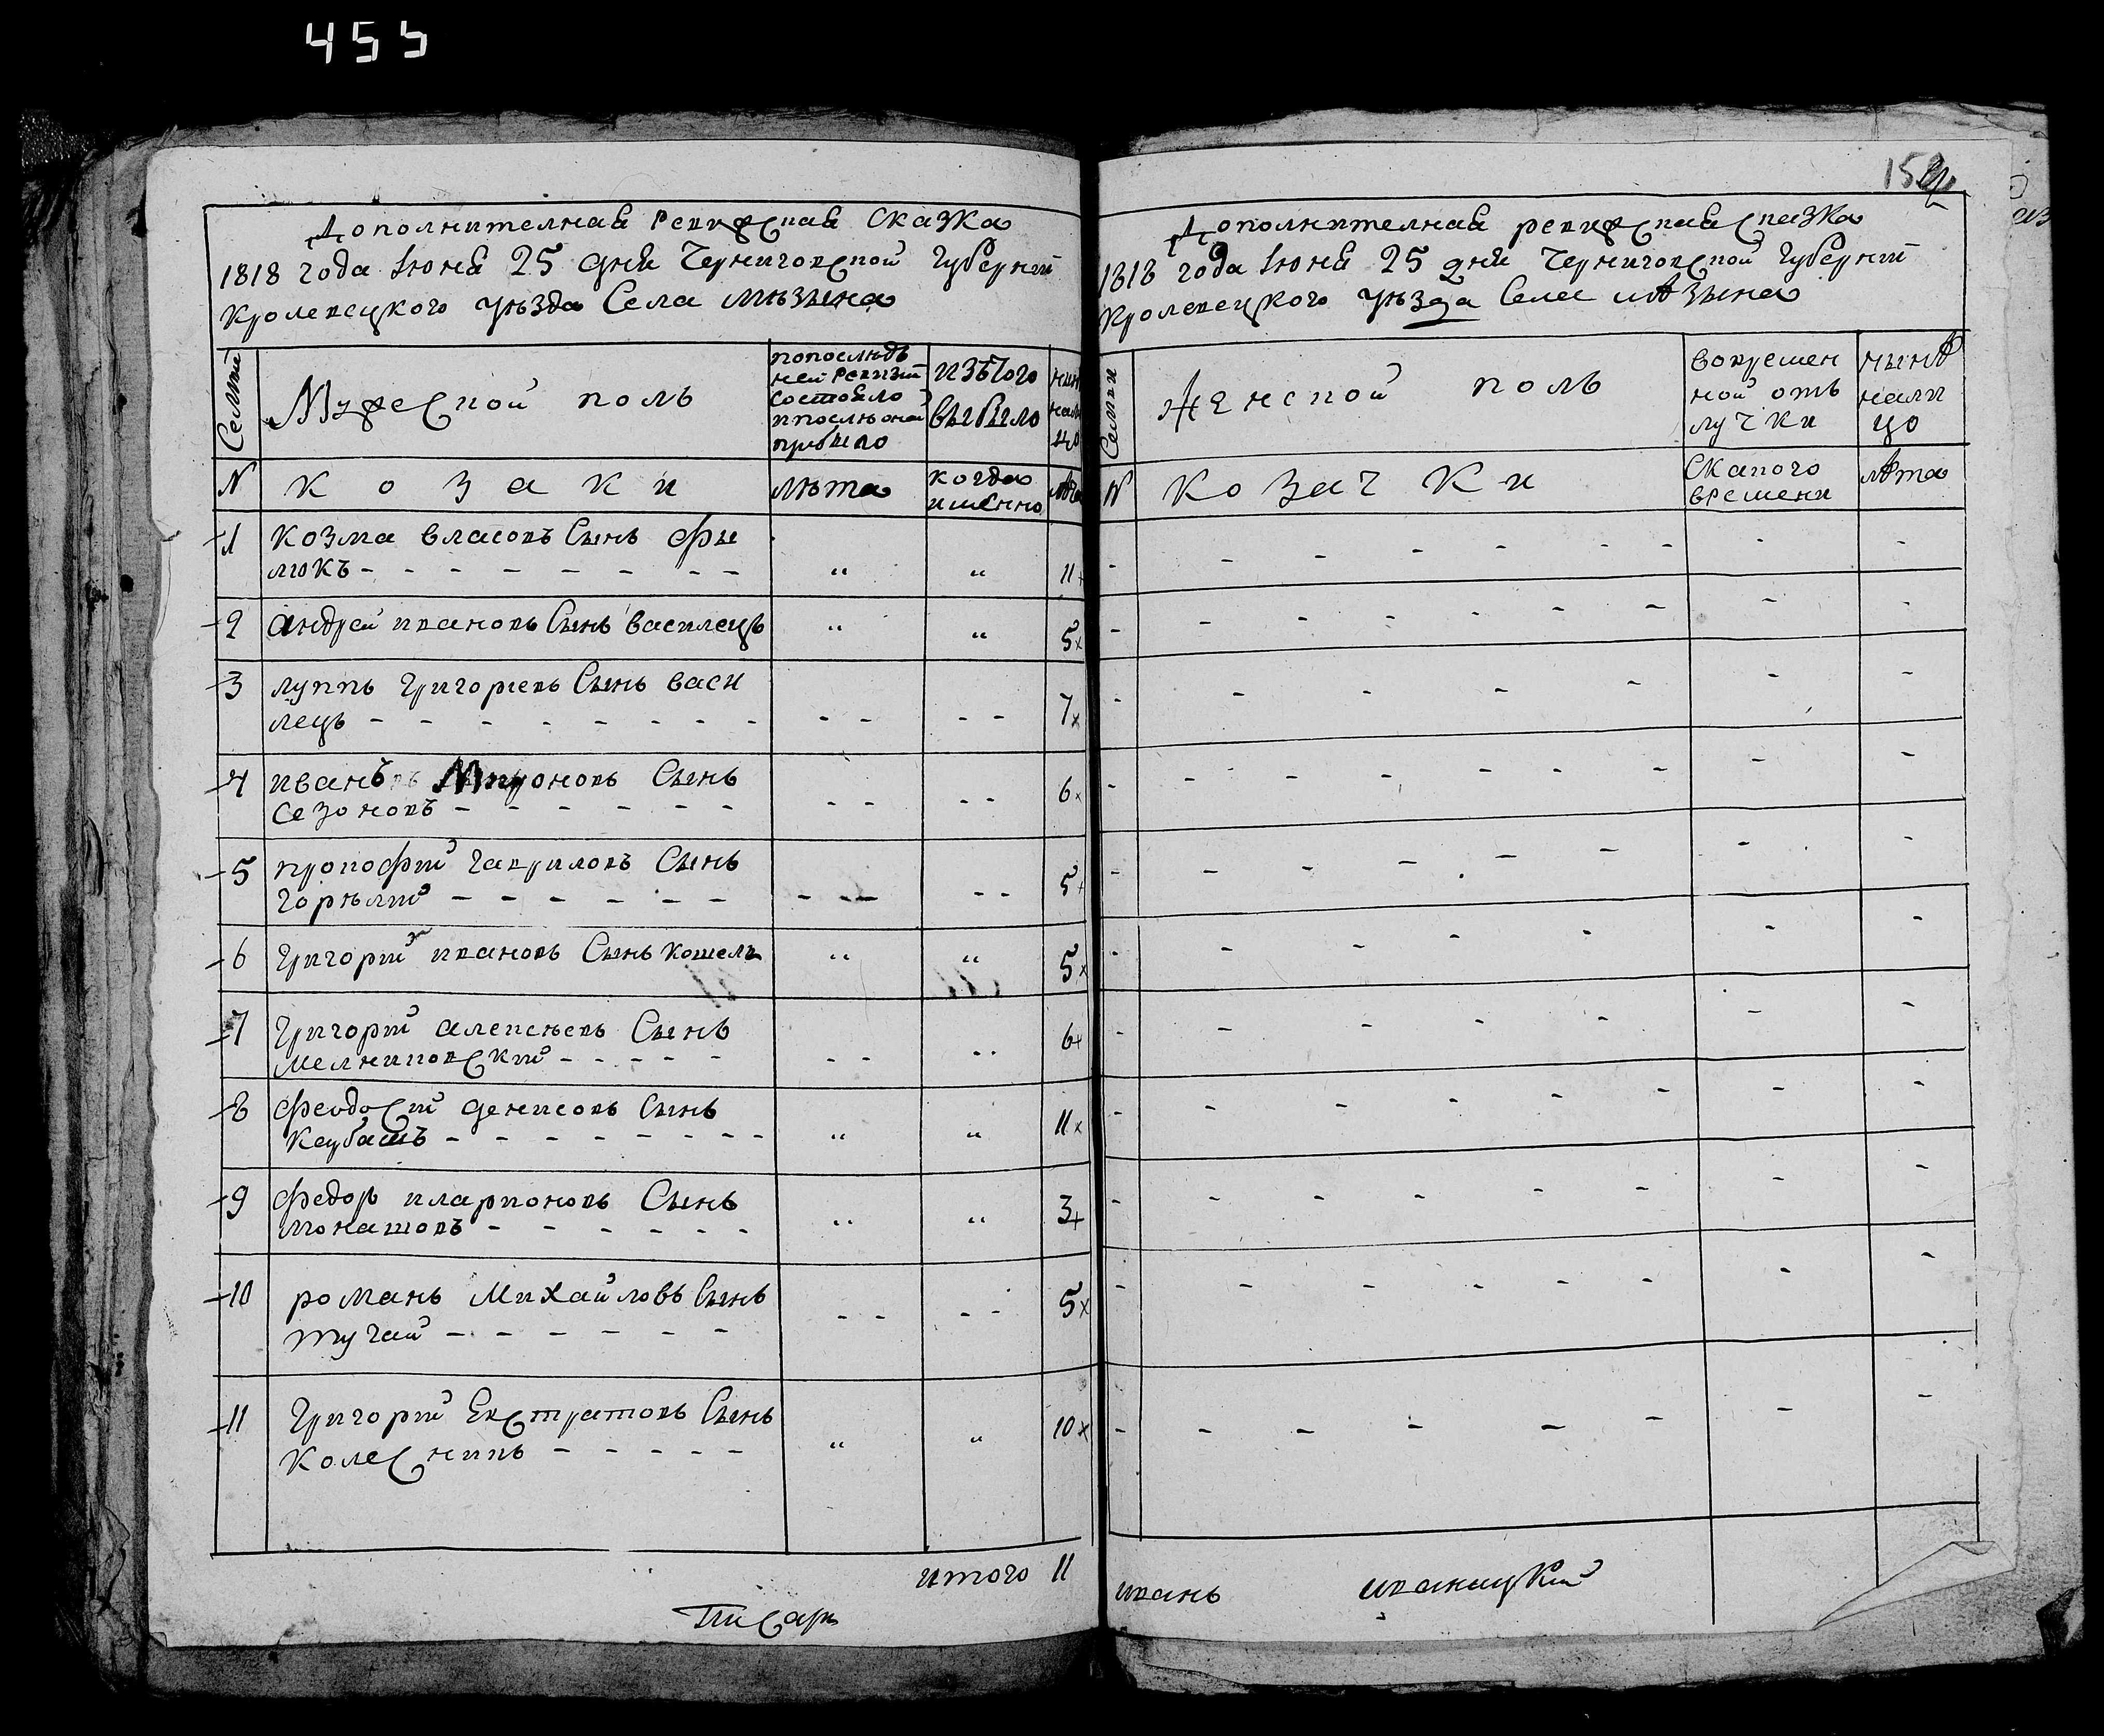 455
Дополнителная Ревизская Сказка
1818 года Июня 25 дня Черниговской Губернии
Кролевецкого уезда Села Мезына
Семьи
Мужеской полъ
попослѣд
ней ревизии
состояло
и послѣ оной
прибыло
изътого
выбыло
нынѣ
нали
цо
N
козаки
лѣта
когда
именно
лѣта
1 козма власовъ Сынъ Фы
люкъ - - - - - - - - " " 11
2 андрей ивановъ Сынъ василецъ " " 5
3 луппъ Григориевъ Сынъ васи
лецъ - - - - - - - - - - - - 7
4 иванъ Мироновъ Сынъ
Сезоновъ - - - - - - - - - - 6
5 прокофий Гавриловъ Сынъ
Горѣлий - - - - - - - - - - 5
6 Григорий ивановъ Сынъ Кошель " " 5
7 Григорий алексѣевъ Сынъ
Мелниковский - - - - - - - - - 6
8 Феодосий денисовъ Сынъ
Кеубашъ - - - - - - - - " " 11
9 Федоръ иларионовъ Сынъ
Монашовъ - - - - - - " " 3
10 романъ Михайловъ Сынъ
тучай - - - - - - - - - - 5
11 Григорий Евстратовъ Сынъ
Колесникъ - - - - - " " 10
итого 11
Писарь
Дополнителная ревизская сказка
1818 года Июня 25 дня Черниговской Губернии
Кролевецкого уѣзда Села мѣзына
Семьи
Женской полъ
вовремен
ной отъ
лучки
нынѣ
нали
цо
N
Козачки
Скапого
времени
лѣта
иванъ иваницкий